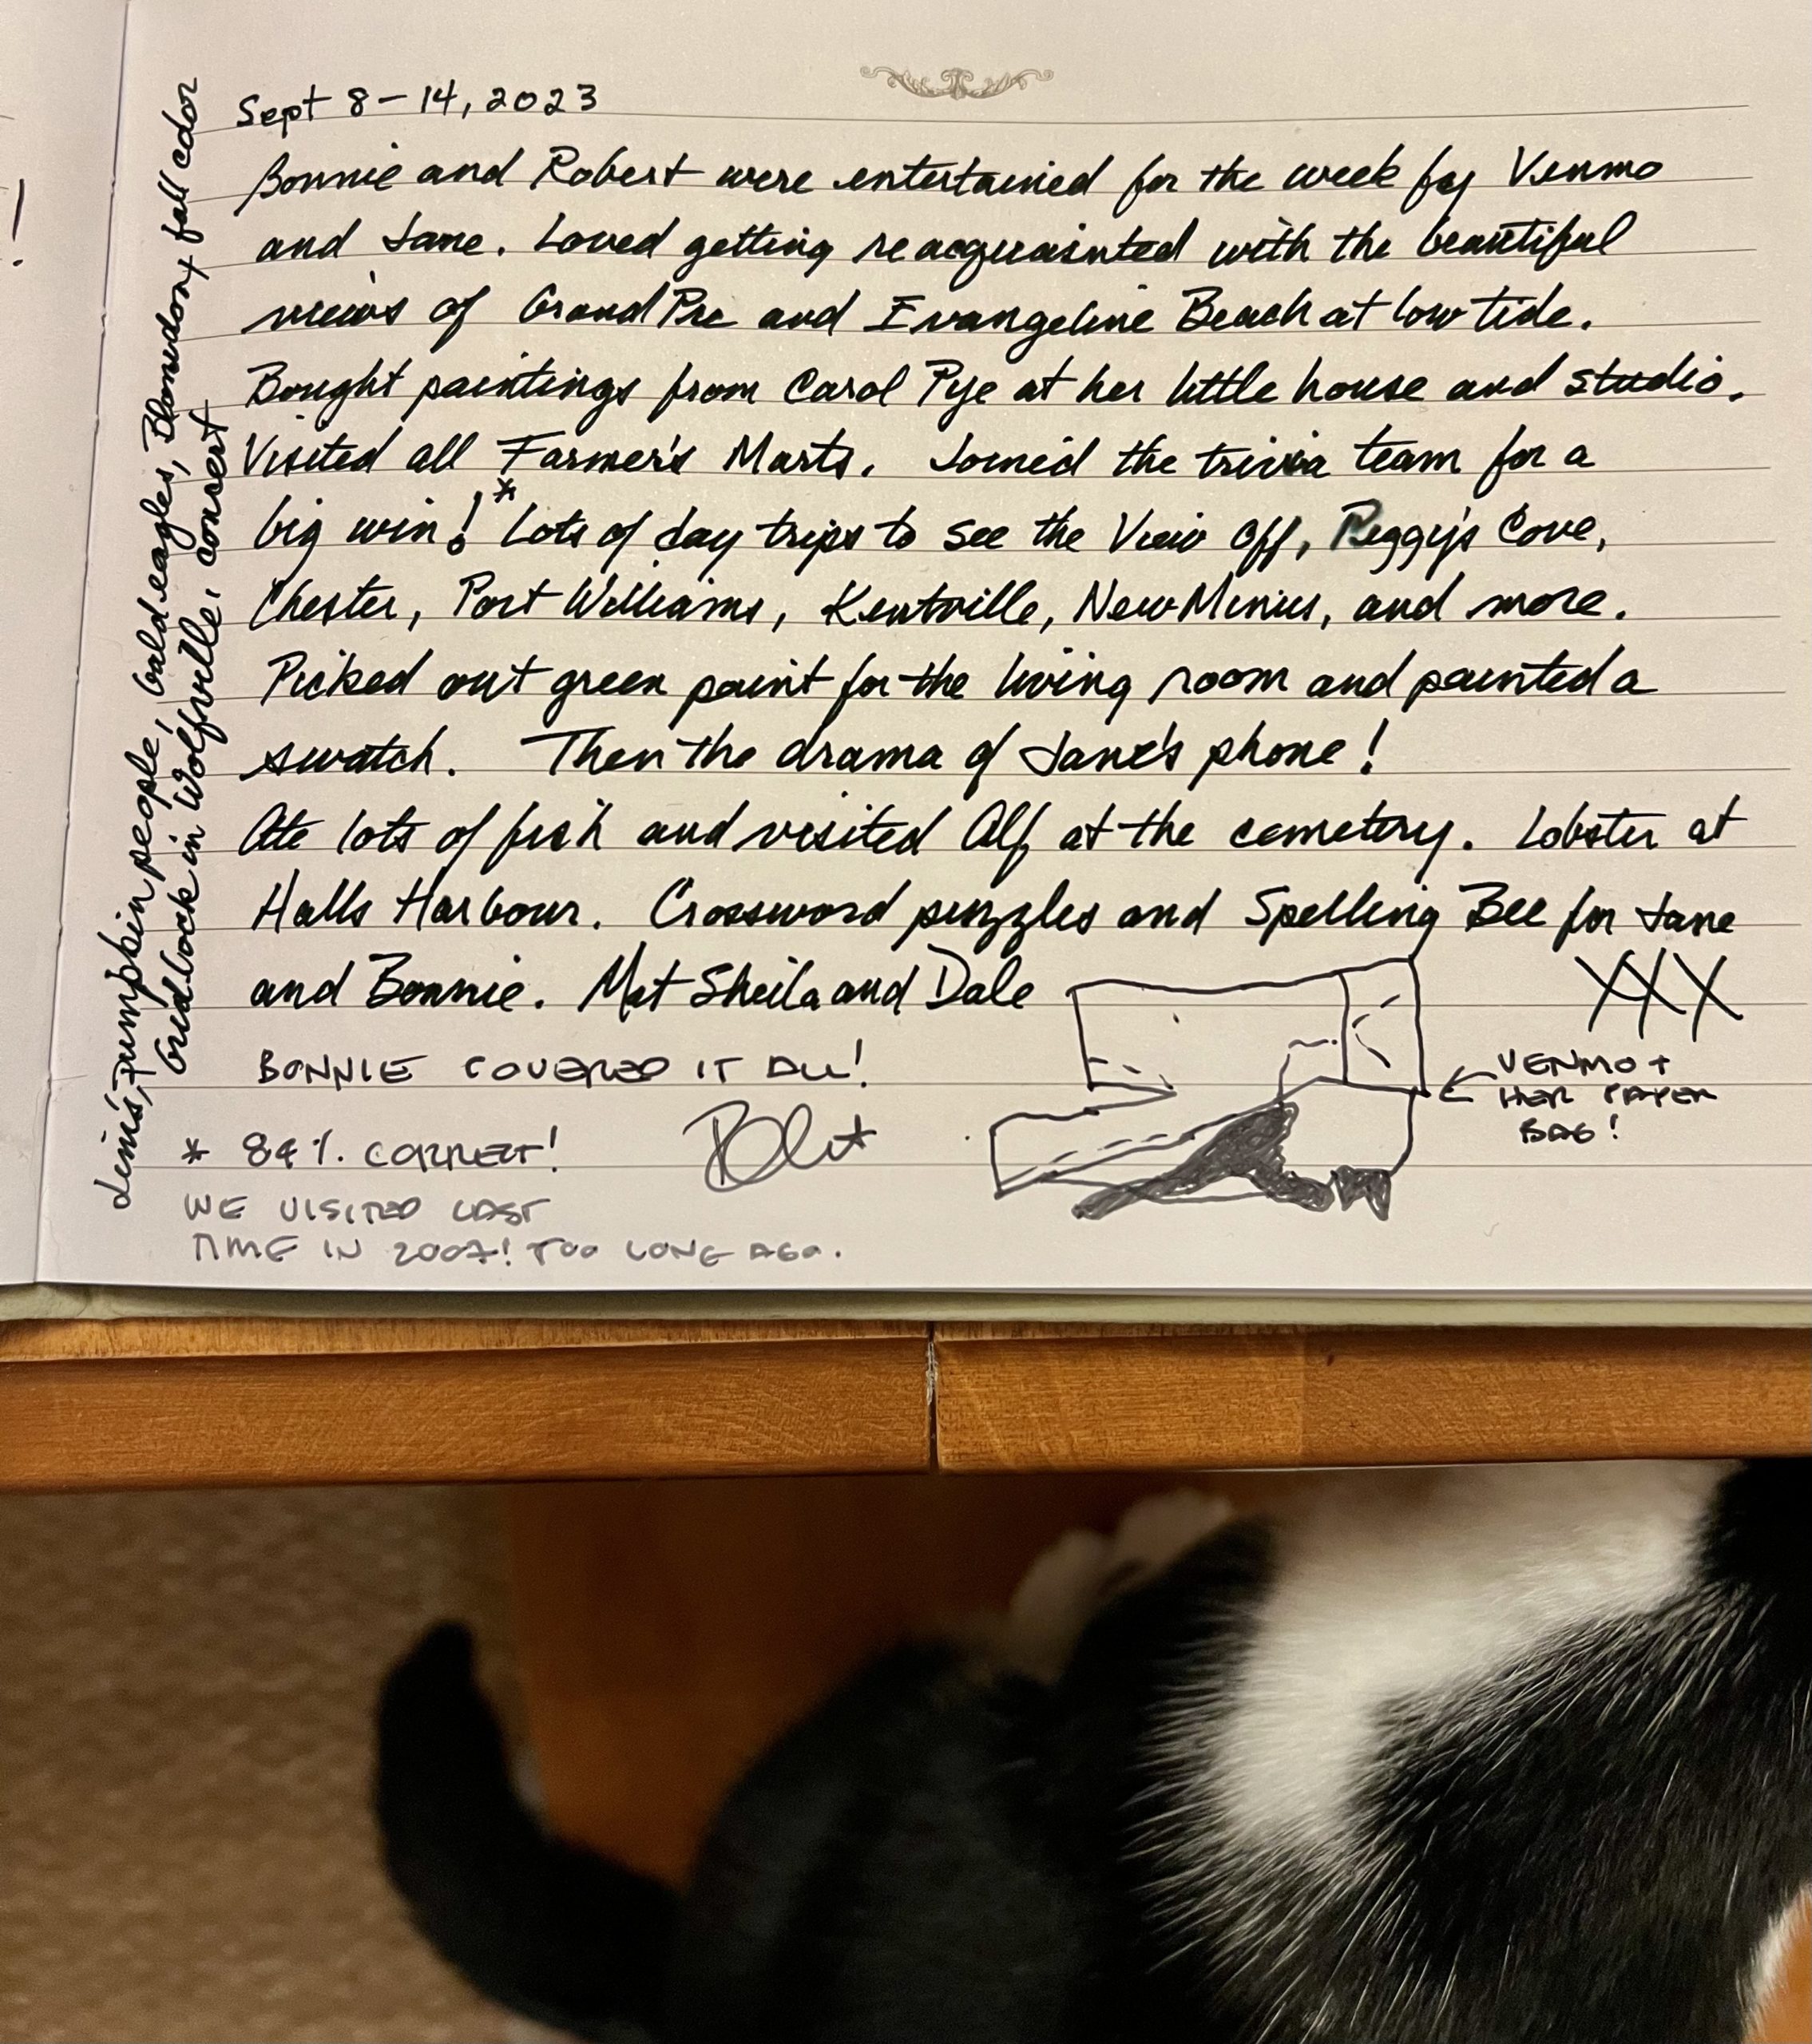 Sept 8-14, 2023
Bonnie and Robert were entertained for the week by Venmo
and Jane. Loved getting reacquainted with the beautiful
views of Grand Pre and Evangeline Beach at low tide.
Bought paintings from Carol Pye at her little house and studio.
Visited all Farmer's Marts. Joined the trivia team for a
big win!* Lots of day trips to see the View Off, Peggy's Cove,
Chester, Port Williams, Kentville, New Minus, and more.
Picked out green paint for the living room and painted a
swatch. Then the drama of Jane's phone!
Ate lots of fish and visited Alf at the cemetery. Lobster at
Halls Harbour. Crossword puzzles and Spelling Bee for Jane
and Bonnie. Met Sheila and Dale
XXX
BONNIE COVERED IT ALL!
VENMO +
HER PAPER
BAG!
* 84% CORRECT!
WE VISITED LAST
TIME IN 2007! TOO LONG AGO.
pumpkin people, bald eagles, Blomidon, fall color
Gridlock in Wolfville, concert
!